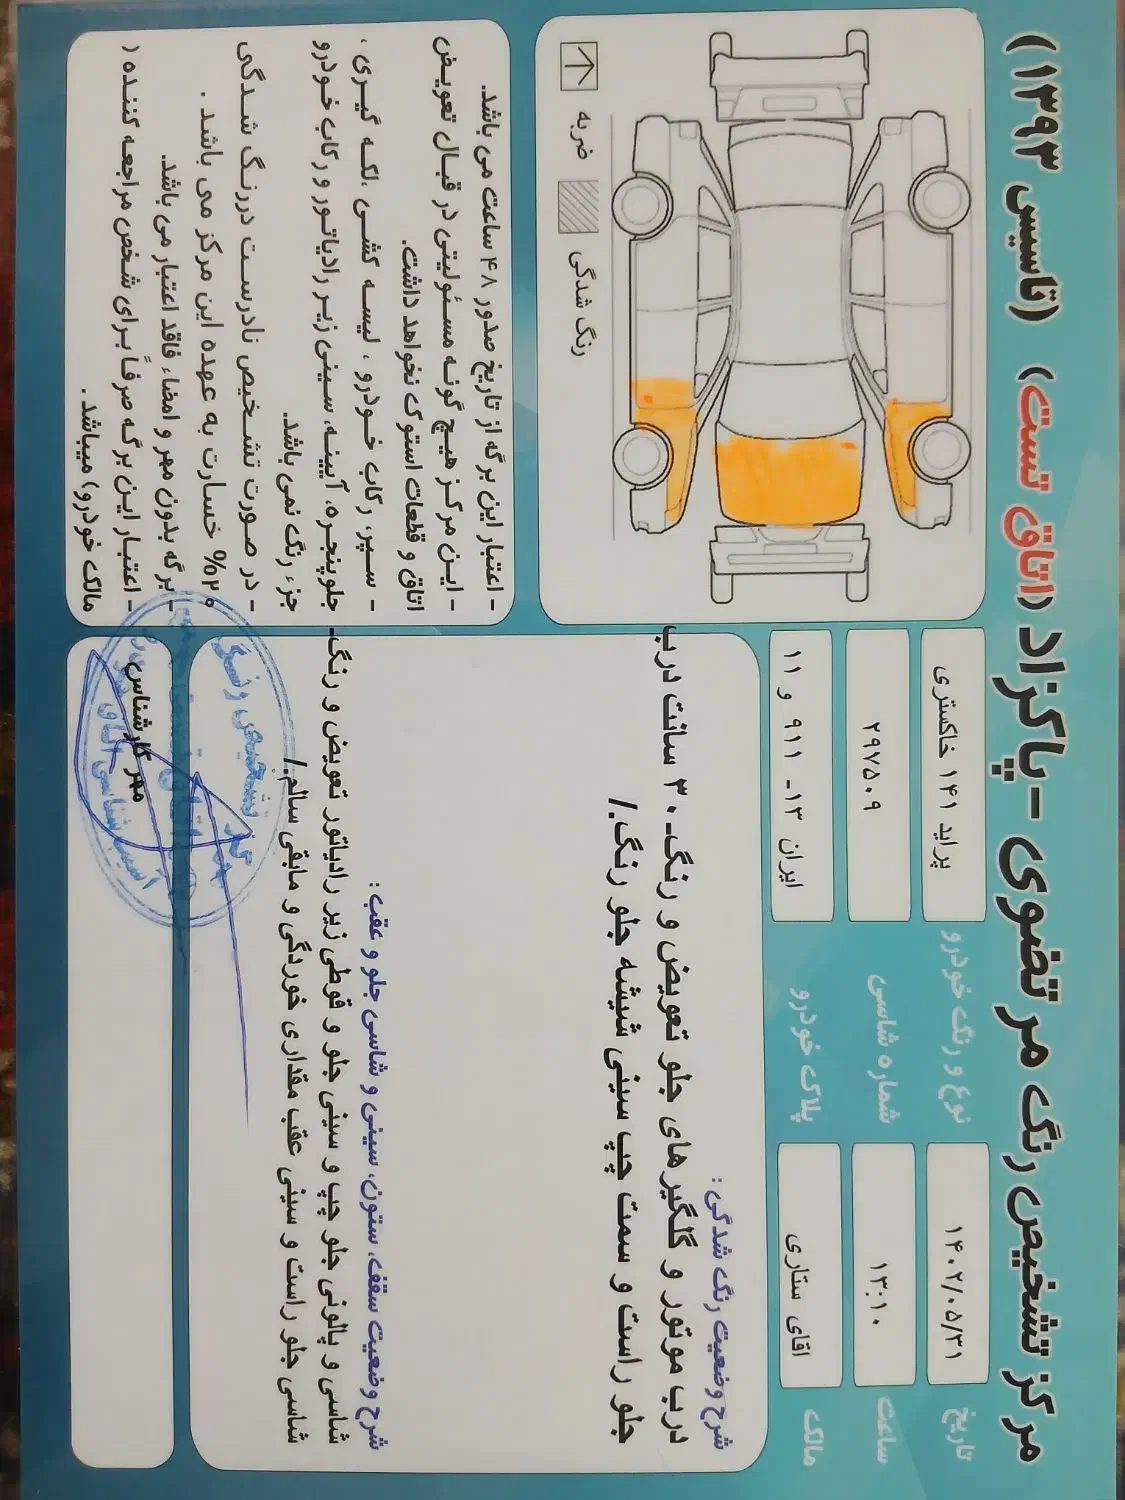 مرکز تشخیص رنگ مرتضوی - پاکزاد (اتاق تست) (تاسیس ۱۳۹۳)
تاریخ
۱۴۰۲/۰۵/۳۱
نوع و رنگ خودرو
پراید ۱۴۱ خاکستری
ساعت
۱۳:۱۰
شماره شاسی
۲۹۷۵۰۹
مالک
اقای ستاری
پلاک خودرو
ایران ۱۳- ۹۱۱ و ۱۱
شرح وضعیت رنگ شدگی :
درب موتور و گلگیرهای جلو تعویض و رنگ-۳۰ سانت درب
جلو راست و سمت چپ سینی شیشه جلو رنگ./
شرح وضعیت سقف، ستون، سینی و شاسی جلو و عقب :
شاسی و پالونی جلو چپ و سینی جلو و قوطی زیر رادیاتور تعویض و رنگ-
شاسی جلو راست و سینی عقب مقداری خوردگی و مابقی سالم./
مهر کارشناس
ضربه
رنگ شدگی
- اعتبار این برگه از تاریخ صدور ۴۸ ساعت می باشد.
- این مرکز هیچ گونه مسئولیتی در قبال تعویض
اتاق و قطعات استوک نخواهد داشت.
- سپر، رکاب خودرو ، لیسه کشی ،لکه گیری ،
جلوپنجره، آیینه، سینی زیر رادیاتور و رکاب خودرو
جزء رنگ نمی باشد.
- در صورت تشخیص نادرست دررنگ شدگی
۲۰% خسارت به عهده این مرکز می باشد .
- برگه بدون مهر و امضاء فاقد اعتبار می باشد.
- اعتبار این برگه صرفاً برای شخص مراجعه کننده (
مالک خودرو) میباشد .